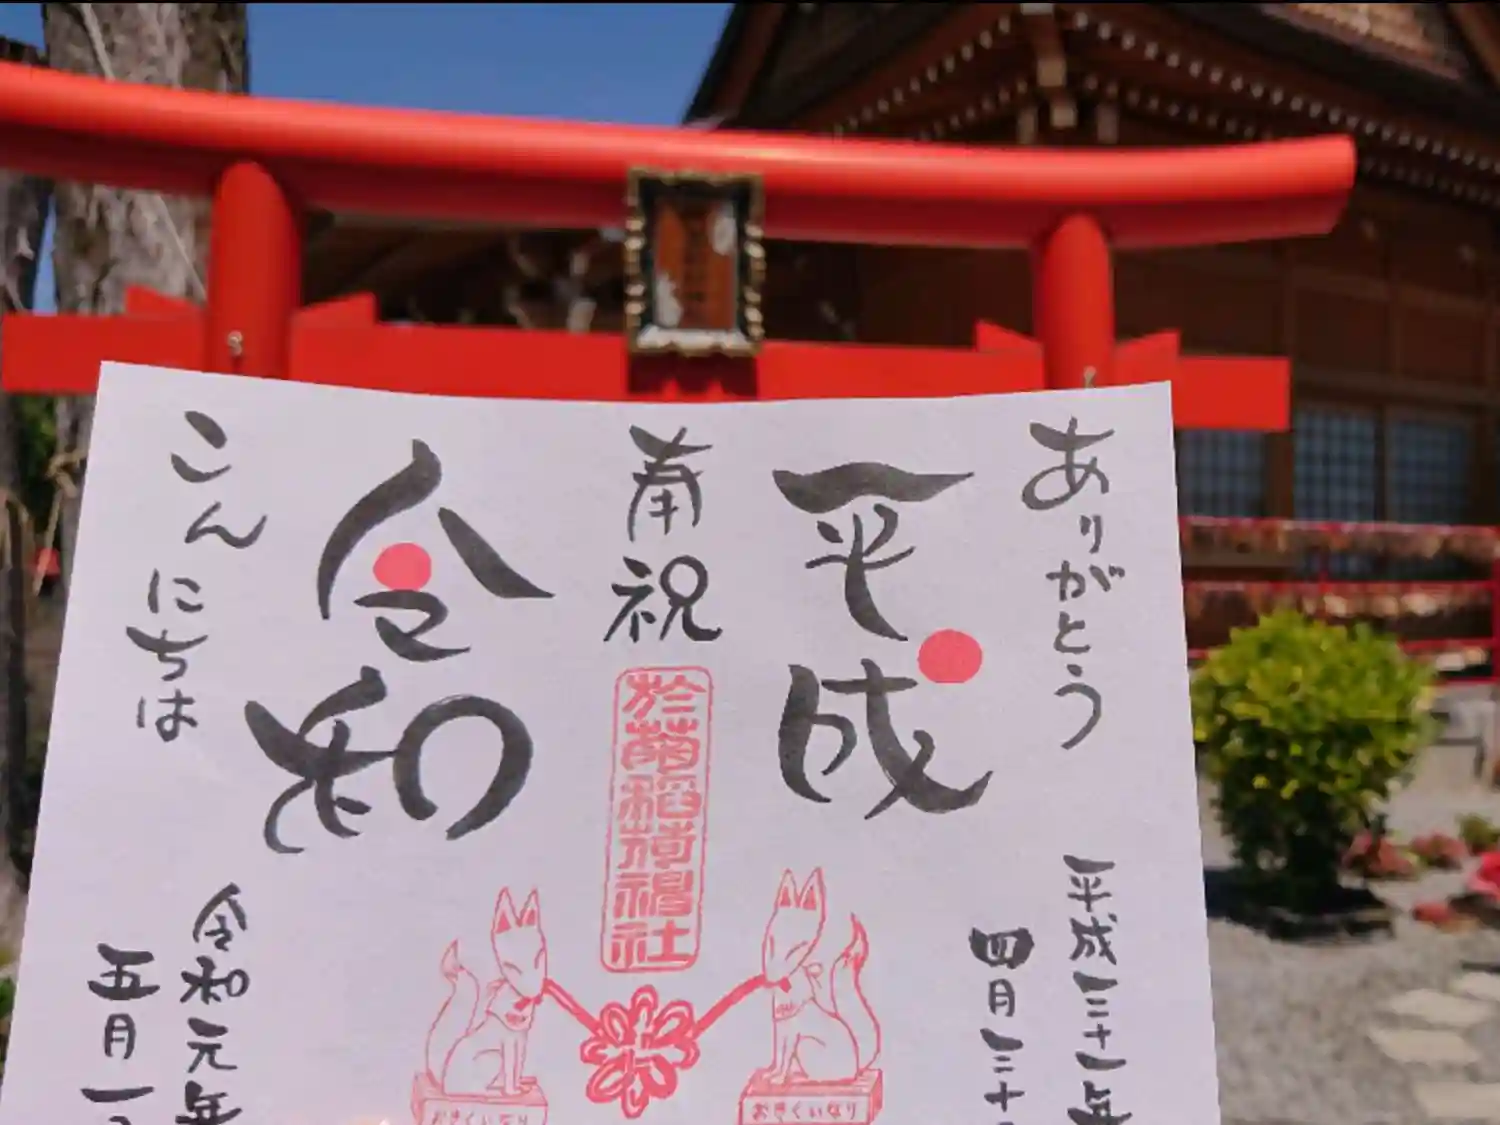 ありがとう
平成
奉祝
令和
こんにちは
於菊稲荷神社
平成三十一年
四月三十
令和元年
五月一
おきくいなり
おきくいなり